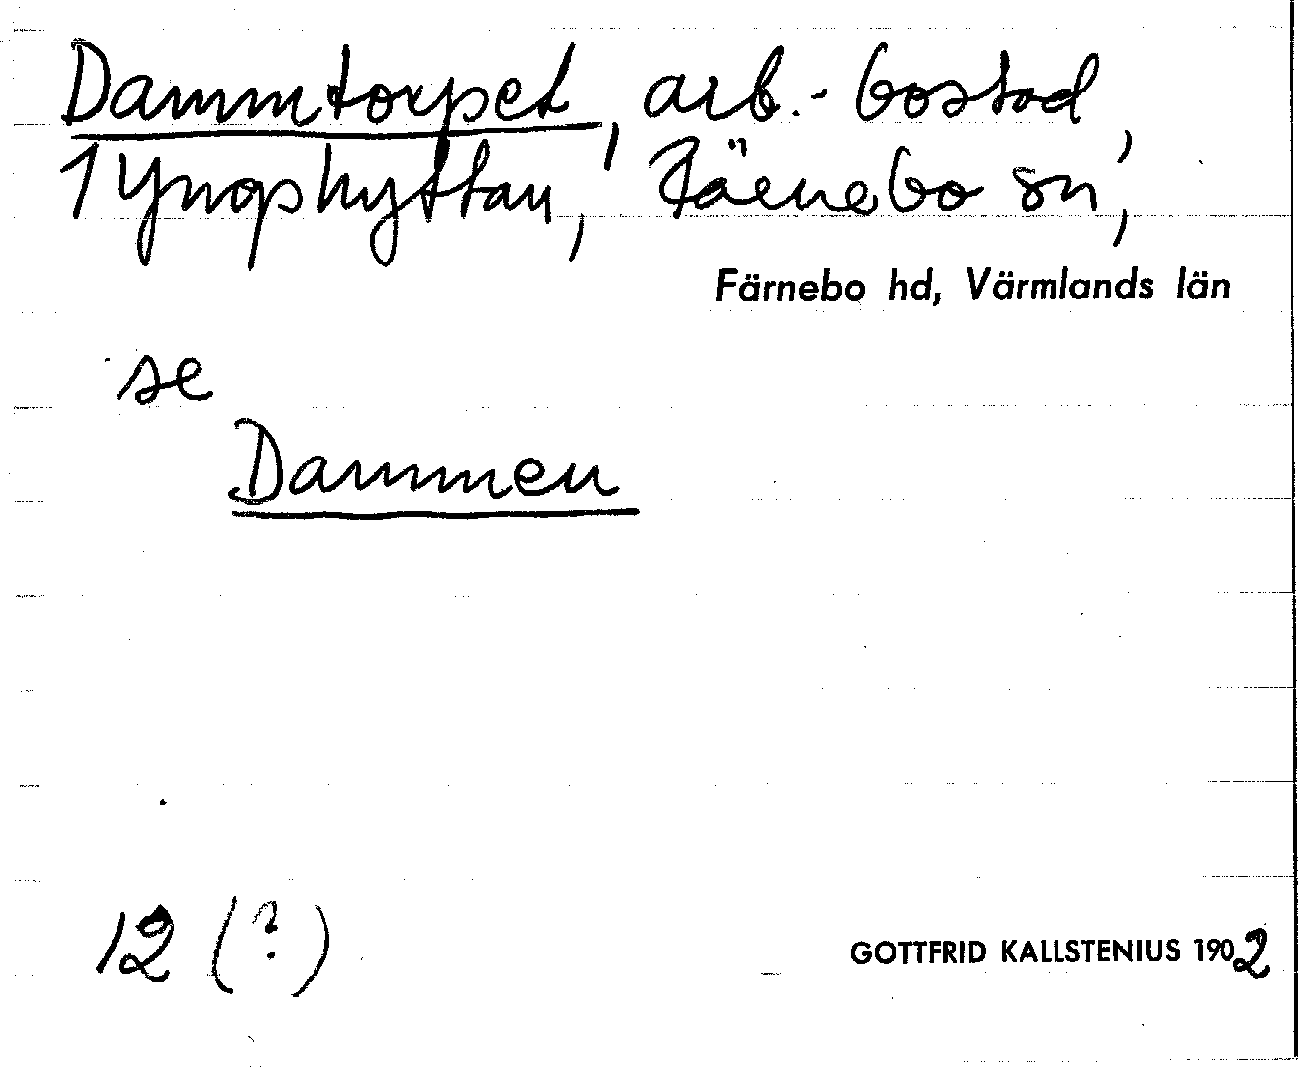 Dammtorpet, arb.-bostad,
1 Yngshyttan, Färnebo sn,
Färnebo hd, Värmlands län
se
Dammen
12 (?)
GOTTFRID KALLSTENIUS 1902